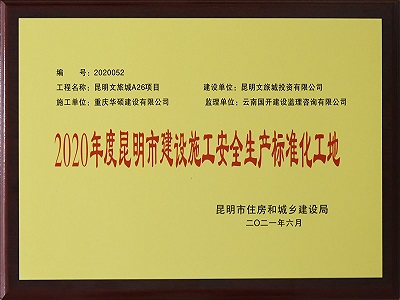 编 号：2020052
工程名称：昆明文旅城A26项目 建设单位：昆明文旅城投资有限公司
施工单位：重庆华硕建设有限公司 监理单位：云南国开建设监理咨询有限公司
2020年度昆明市建设施工安全生产标准化工地
昆明市住房和城乡建设局
二〇二一年六月